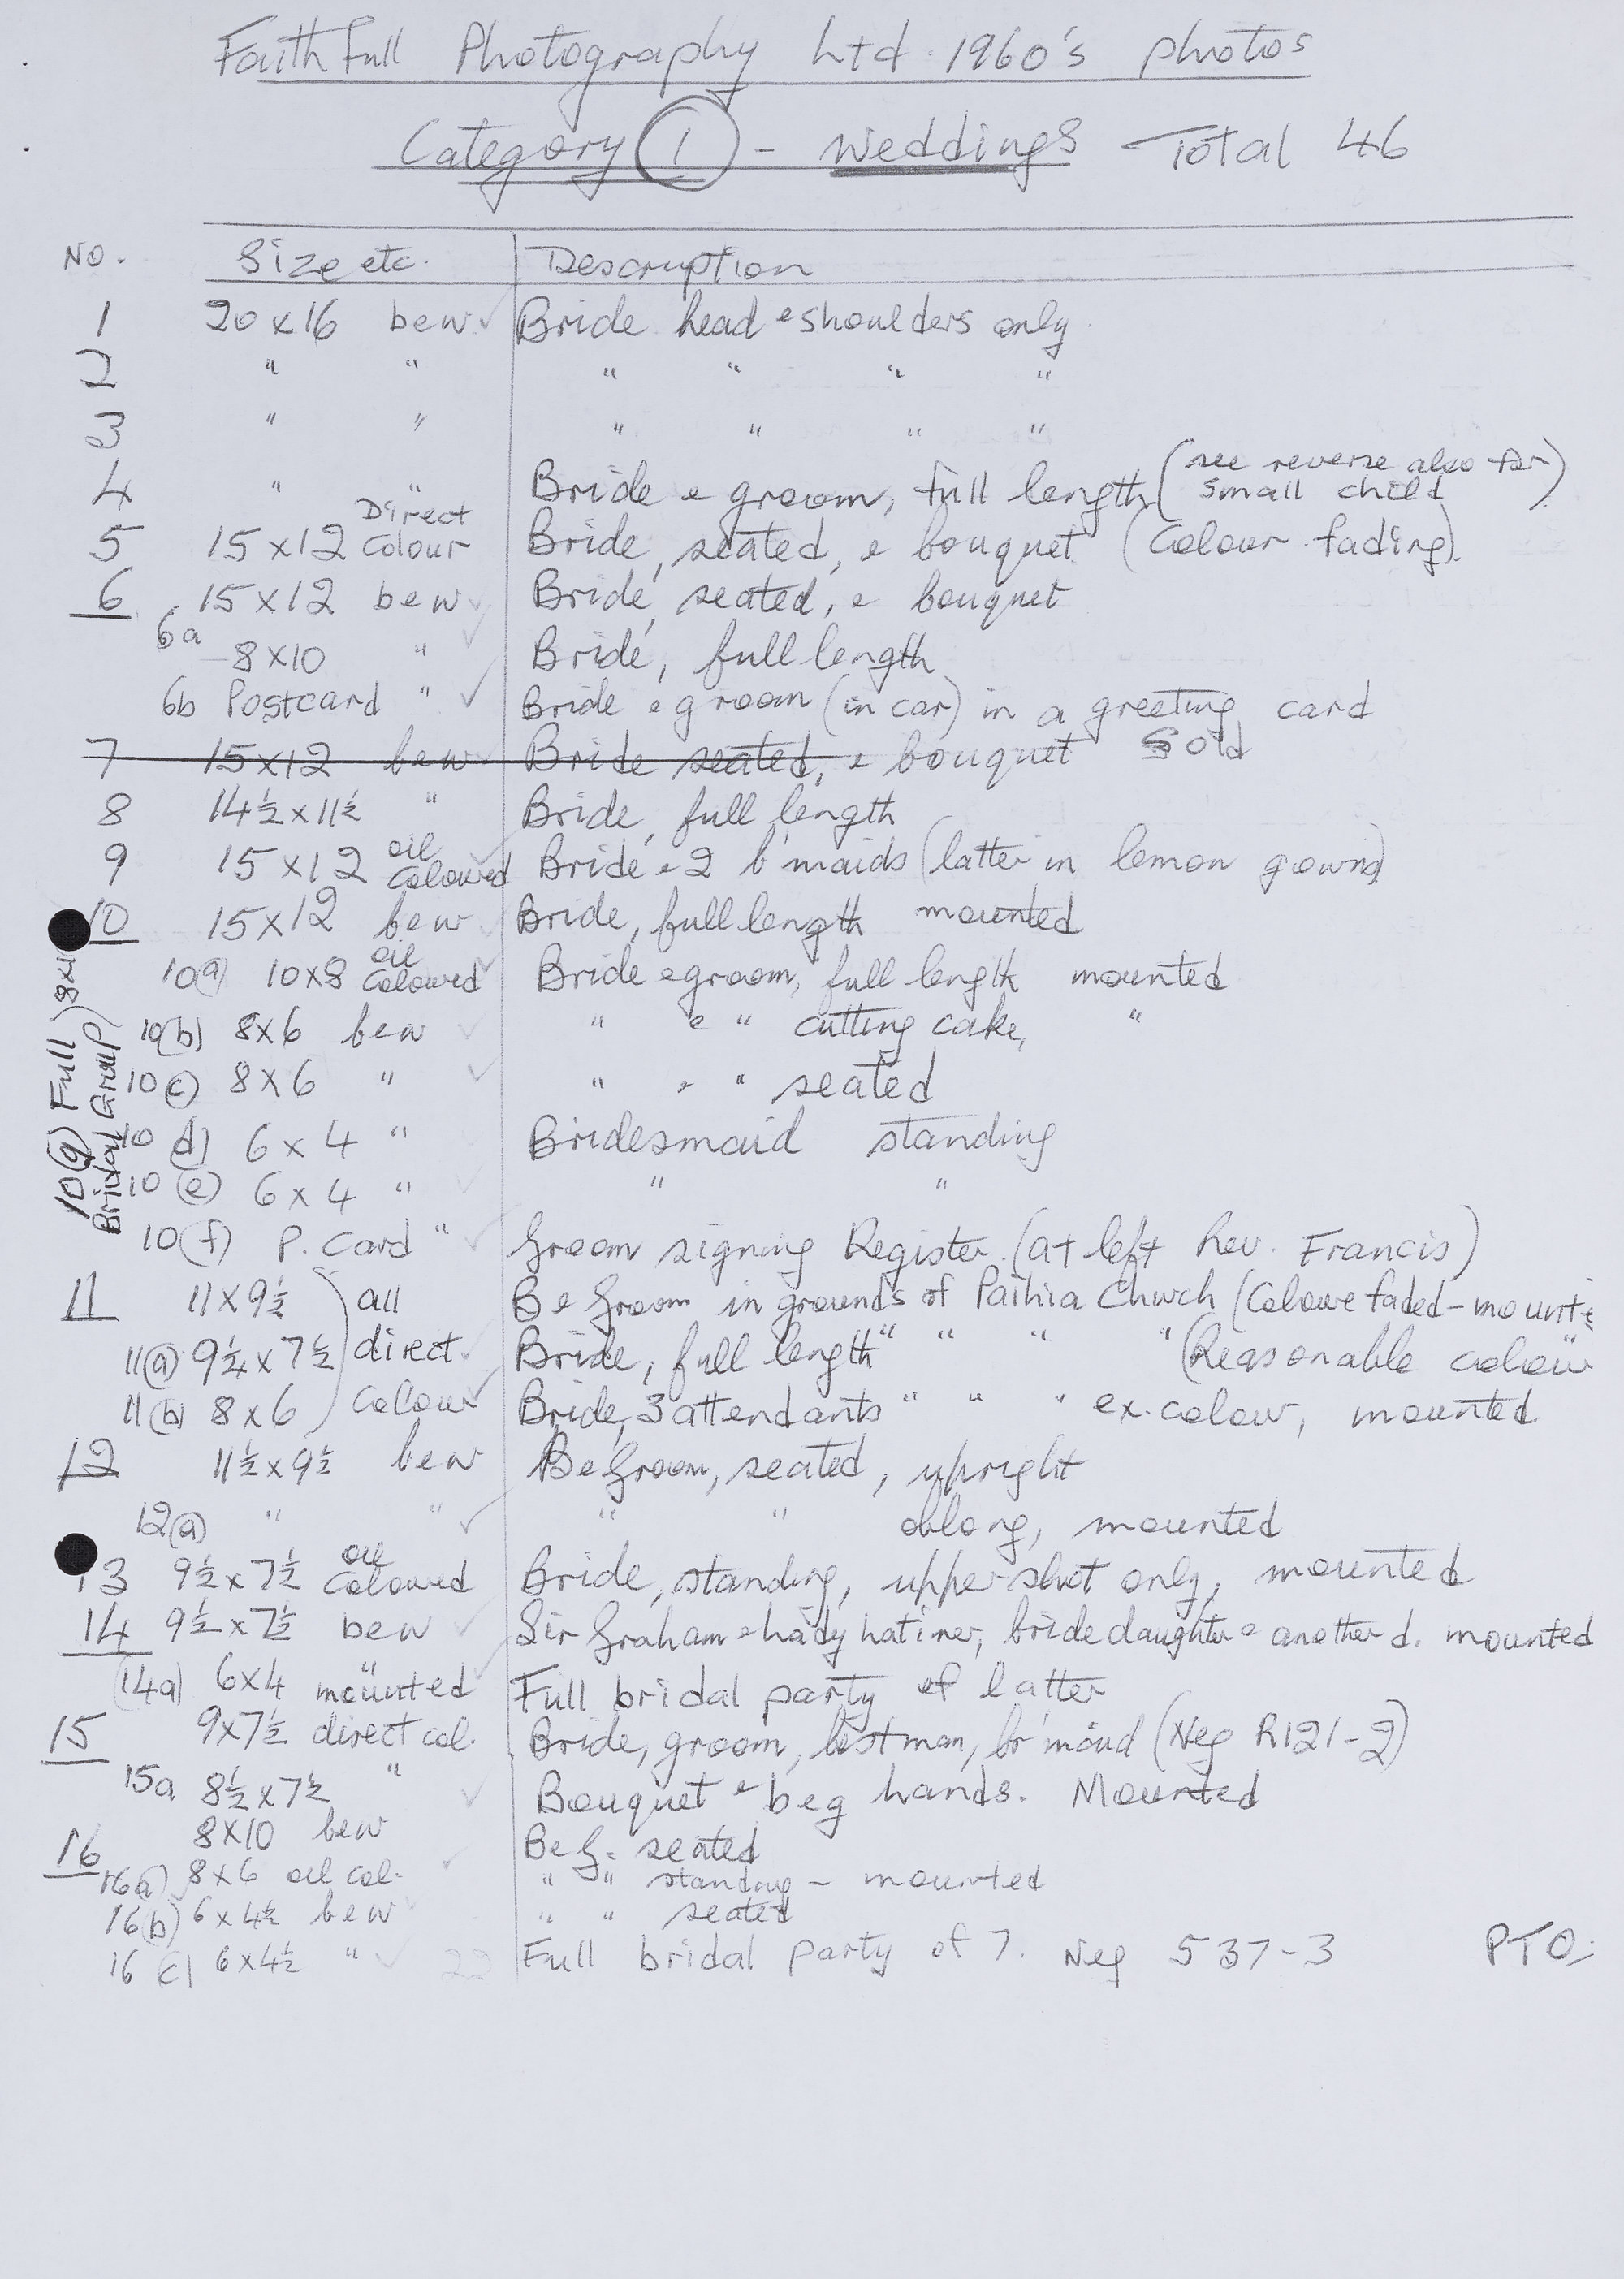 Faithfull Photography Ltd 1960's photos
Category 1 - Weddings Total 46
No. Size etc. Description
1 20 x 16 b e w ✓ Bride head e shoulders only
2 " " " " " "
3 " " " " " "
4 " " Bride e groom, full length (see reverse also for small child)
5 15 x 12 Direct Colour Bride, seated, e bouquet (Colour fading).
6 15 x 12 b e w ✓ Bride, seated, e bouquet
6a 8 x 10 " ✓ Bride, full length
6b Postcard " ✓ Bride e groom (in car) in a greeting card
7 15 x 12 b e w ✓ Bride seated, e bouquet Sold
8 14½ x 11½ " Bride, full length
9 15 x 12 oil Coloured ✓ Bride e 2 b'maids (latter in lemon gowns)
10 15 x 12 b e w ✓ Bride, full length mounted
10(a) 10 x 8 oil Coloured ✓ Bride e groom, full length mounted
10(b) 8 x 6 b e w ✓ " e " cutting cake, "
10(c) 8 x 6 " ✓ " e " seated
10 d) 6 x 4 " Bridesmaid standing
10(e) 6 x 4 " ✓ " "
10(f) P. Card " ✓ Groom signing Register (at left Rev. Francis)
10(g) Full Bridal Group)
11 11 x 9½ all B e Groom in grounds of Paihia Church (Colour faded -
11(a) 9¼ x 7½ direct ✓ Bride, full length " " " " (Reasonable colour
11(b) 8 x 6 Colour ✓ Bride, 3 attendants " " " ex. colour, mounted
12 11½ x 9½ b e w B e Groom, seated, upright
12(a) " " ✓ " " oblong, mounted
13 9½ x 7½ oil Coloured Bride, standing, upper shot only, mounted
14 9½ x 7½ b e w ✓ Sir Graham e Lady Latimer, bride daughter e another d. mounted
(14a) 6 x 4 " mounted ✓ Full bridal party of latter
15 9 x 7½ direct col. Bride, groom, bestman, br'maid (Neg R121-2)
15a 8½ x 7½ " ✓ Bouquet e b e g hands. Mounted
16 8 x 10 b e w B e G. seated
16a) 8 x 6 oil col. ✓ " " standing - mounted
16(b) 6 x 4½ b e w ✓ " " seated
16 c) 6 x 4½ " ✓ 22 Full bridal party of 7. Neg 537-3 PTO.